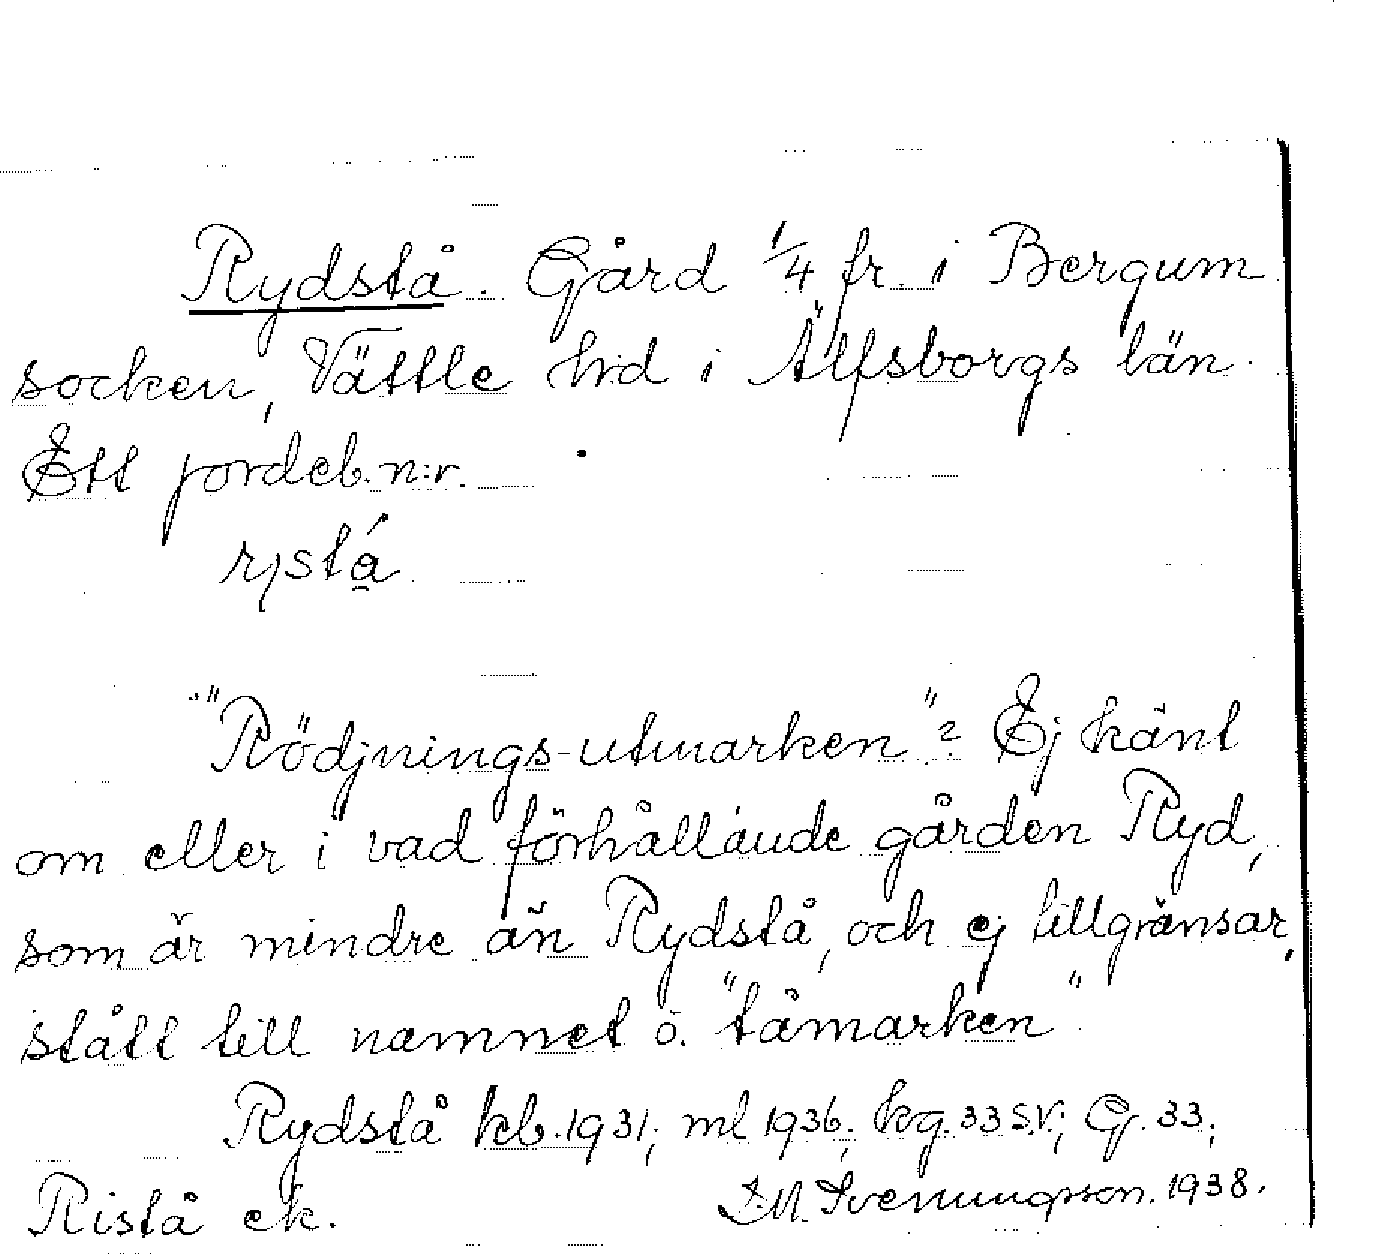 Rydstå. Gård 1/4 fr. i Bergum
socken, Vättle hd i Älfsborgs län.
Ett jordeb.n:r.
rystá
"Rödjnings-utmarken"? Ej känt
om eller i vad förhållande gården Ryd,
som är mindre än Rydstå, och ej tillgränsar,
stått till namnet o. "tåmarken".
Rydstå kb. 1931; ml 1936; kg. 33 S.V; G. 33;
Ristå ek.
Svenungsson. 1938.